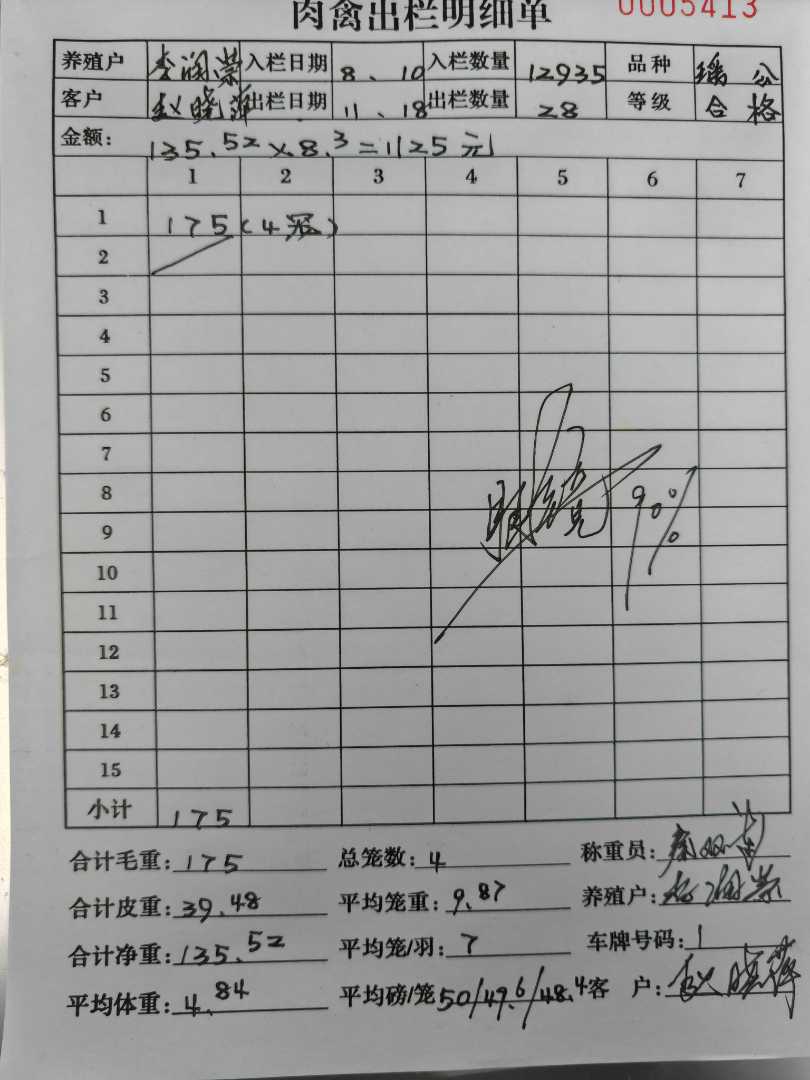 肉禽出栏明细单 0005413
养殖户 李润荣 入栏日期 8、10 入栏数量 12935 品种 瑶公
客户 赵晓萍 出栏日期 11、18 出栏数量 28 等级 合格
金额: 135.52×8.3=1125元
1 2 3 4 5 6 7
1 175(4冠)
2
3
4
5
6
7
8
90%
9
10
11
12
13
14
15
小计 175
合计毛重: 175 总笼数: 4 称重员:
合计皮重: 39.48 平均笼重: 9.87 养殖户: 李润荣
合计净重: 135.52 平均笼/羽: 7 车牌号码: 1
平均体重: 4.84 平均磅/笼 50/49.6/48.4 客户: 赵晓萍